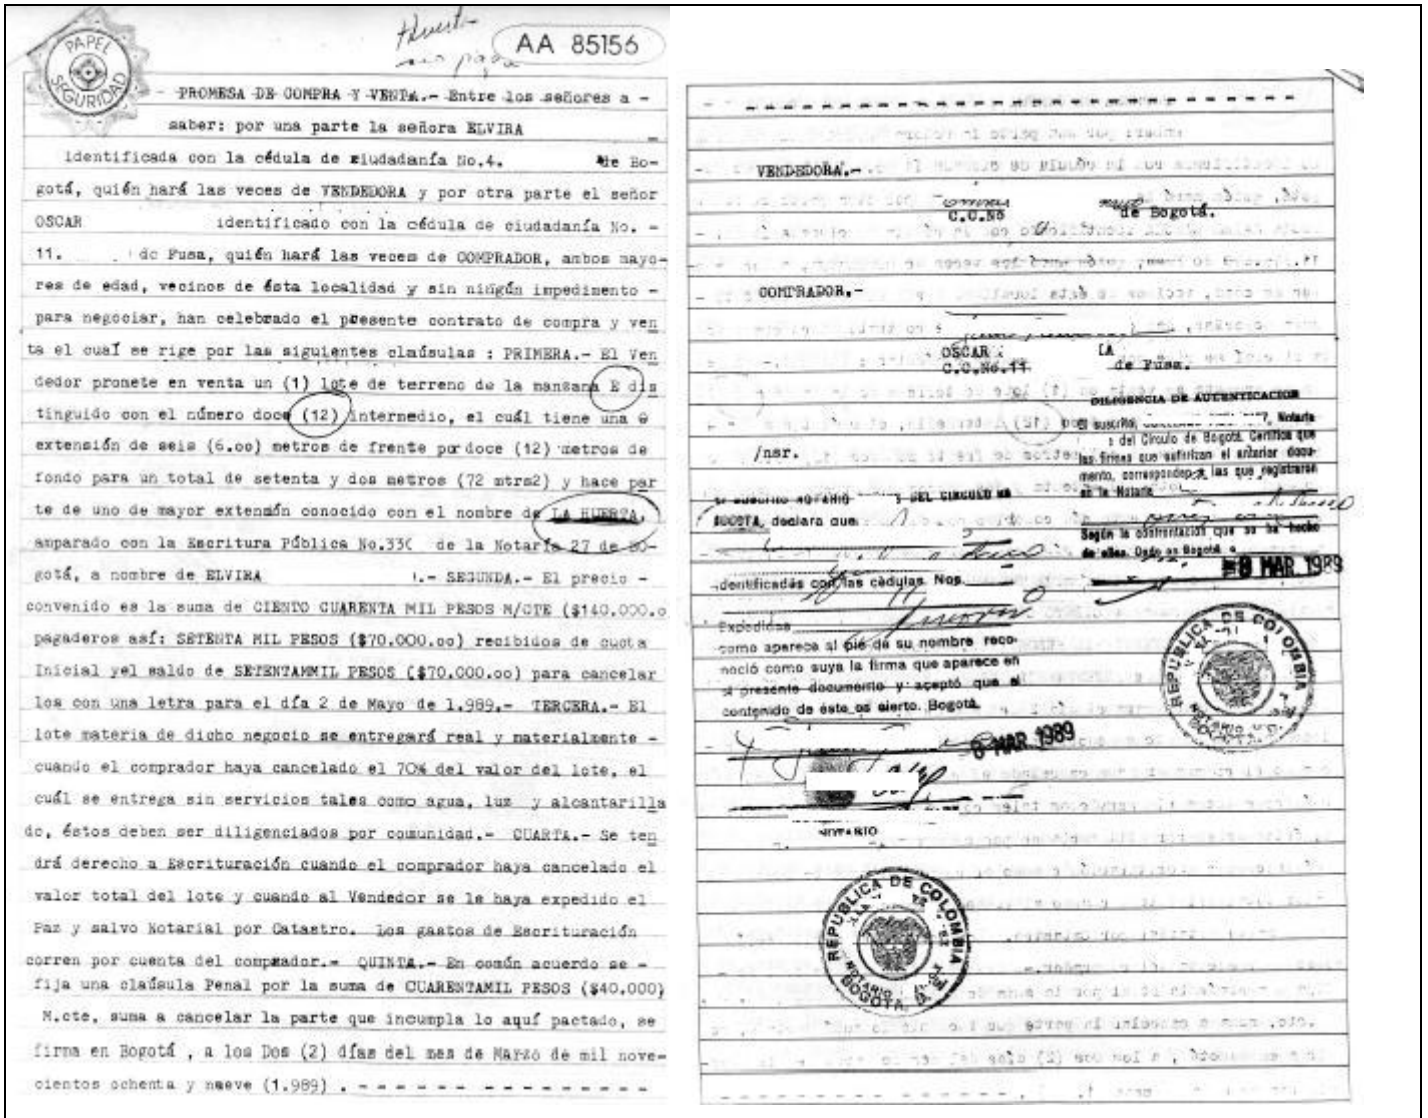 Huerta
PAPEL
SEGURIDAD
AA 85156
- PROMESA DE COMPRA Y VENTA.- Entre los señores a -
saber: por una parte la señora ELVIRA
identificada con la cédula de ciudadanía No.4. de Bo-
gotá, quién hará las veces de VENDEDORA y por otra parte el señor
OSCAR identificado con la cédula de ciudadanía No. -
11. de Fusa, quién hará las veces de COMPRADOR, ambos mayo-
res de edad, vecinos de ésta localidad y sin ningún impedimento -
para negociar, han celebrado el presente contrato de compra y ven
ta el cual se rige por las siguientes claúsulas : PRIMERA.- El Ven
dedor promete en venta un (1) lote de terreno de la manzana E dis
tinguido con el número doce (12) intermedio, el cuál tiene una
extensión de seis (6.oo) metros de frente por doce (12) metros de
fondo para un total de setenta y dos metros (72 mtrs2) y hace par
te de uno de mayor extensión conocido con el nombre de LA HUERTA,
amparado con la Escritura Pública No.330 de la Notaría 27 de Bo-
gotá, a nombre de ELVIRA .- SEGUNDA.- El precio -
convenido es la suma de CIENTO CUARENTA MIL PESOS M/CTE ($140.000.o
pagaderos así: SETENTA MIL PESOS ($70.000.oo) recibidos de cuota
Inicial yel saldo de SETENTAMMIL PESOS ($70.000.oo) para cancelar
los con una letra para el día 2 de Mayo de 1.989.- TERCERA.- El
lote materia de dicho negocio se entregará real y materialmente -
cuando el comprador haya cancelado el 70% del valor del lote, el
cuál se entrega sin servicios tales como agua, luz y alcantarilla
do, éstos deben ser diligenciados por comunidad.- CUARTA.- Se ten
drá derecho a Escrituración cuando el comprador haya cancelado el
valor total del lote y cuando al Vendedor se le haya expedido el
Paz y salvo Notarial por Catastro. Los gastos de Escrituración
corren por cuenta del comprador.- QUINTA.- En común acuerdo se -
fija una claúsula Penal por la suma de CUARENTAMIL PESOS ($40.000)
M.cte, suma a cancelar la parte que incumpla lo aquí pactado, se
firma en Bogotá , a los Dos (2) días del mes de Marzo de mil nove-
cientos ochenta y nueve (1.989) . - - - - - - - - - - - - - -
VENDEDORA.-
C.C.No de Bogotá.
COMPRADOR.-
OSCAR LA
C.C.No.11 de Fusa.
/nsr.
DILIGENCIA DE AUTENTICACION
El suscrito, Notario
del Círculo de Bogotá. Certifica que
las firmas que autorizan el anterior docu-
mento, corresponden a las que registraron
en la Notaría
Según la confrontación que se ha hecho
de ellas. Dado en Bogotá, a
8 MAR. 1989
El suscrito NOTARIO DEL CIRCULO DE
BOGOTA, declara que
identificadas con las cédulas. Nos.
Expedidas
como aparece al pié de su nombre reco-
noció como suya la firma que aparece en
el presente documento y aceptó que el
contenido de éste es cierto. Bogotá.
8 MAR 1989
NOTARIO
REPUBLICA DE COLOMBIA
NOTARIO
BOGOTA, D.E.
REPUBLICA DE COLOMBIA
NOTARIO
BOGOTA, D.E.